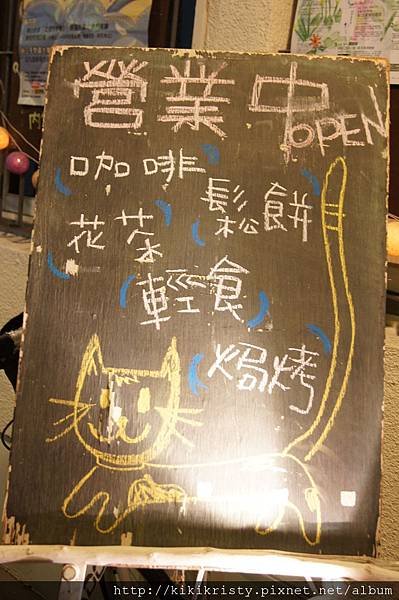 營業中
OPEN
咖啡
鬆餅
花茶
輕食
焗烤
http://kikikristy.pixnet.net/album